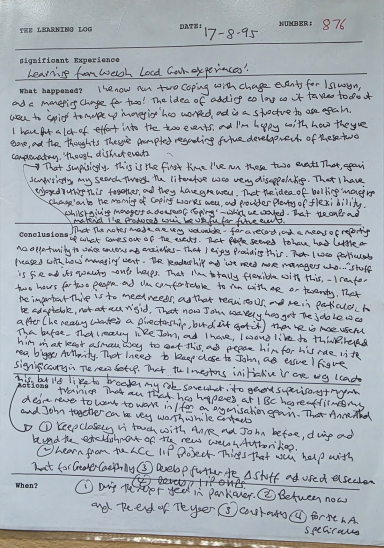 THE LEARNING LOG DATE: 17-8-95 NUMBER: 876
Significant Experience
Learning from Welsh Local Govt experiences!
What happened? I've now run two Coping with change events for Islwyn,
and a managing change for two! The idea of adding
to Coping to make up managing has worked, and is a structure to use again.
I have put a lot of effort into the two events and I'm happy with how they've
gone, and the thoughts regarding future development of these two
complementary, though distinct events
That surprisingly, this is the first time I've run these two events. That, again
surprisingly, my search through the literature was very disappointing. That I have
enjoyed putting this together, and they have gone well. That the idea of bolting managing
change onto the morning of coping works well, and provides plenty of flexibility,
whilst giving managers a dose of 'coping' - which we wanted. That the
material I've produced will be useful for future events
Conclusions That the notes made are very valuable - for a record and a means of reporting
of what comes out of the events. That people seemed to have had little or
no opportunity to voice concerns and anxieties. That I enjoy providing this. That I was particularly
pleased with how managing went. The leadership and we need more managers who... stuff
is fine and its quality helps. That I'm totally flexible with this - I ran for
two hours for two people, and I'm comfortable to run with six or twenty. That
the important thing is to meet needs, and that requires us, and me in particular, to
be adaptable, not at all rigid. That now John has got the job he was
after (he really wanted a Directorship, but didn't get it) then he is more useful
than before. That I really like John, and I have, I would like to think helped
him in at least a small way to get this, and prepare him for his role in the
new bigger Authority. That I need to keep close to John, and ensure I figure
significantly in the new setup. That the Investors initiative is one way I can do
this, but I'd like to broaden my role somewhat into general supervisory/mgmt
Actions training. That all that has happened at IBC has reaffirmed my
desire never to want to work in/for an organisation again. That Anne and
and John together can be very worthwhile contacts
① Keep closely in touch with Anne and John before, during and
beyond the establishment of the new Welsh Authorities.
② Learn from the IIP Project Things that will help with
that for Caerphilly ③ Develop further the Δ stuff and use it elsewhere
④ Develop IIP
When? ① During the next year in particular. ② Between now
and the end of the year ③ Constantly ④ For the
specifically